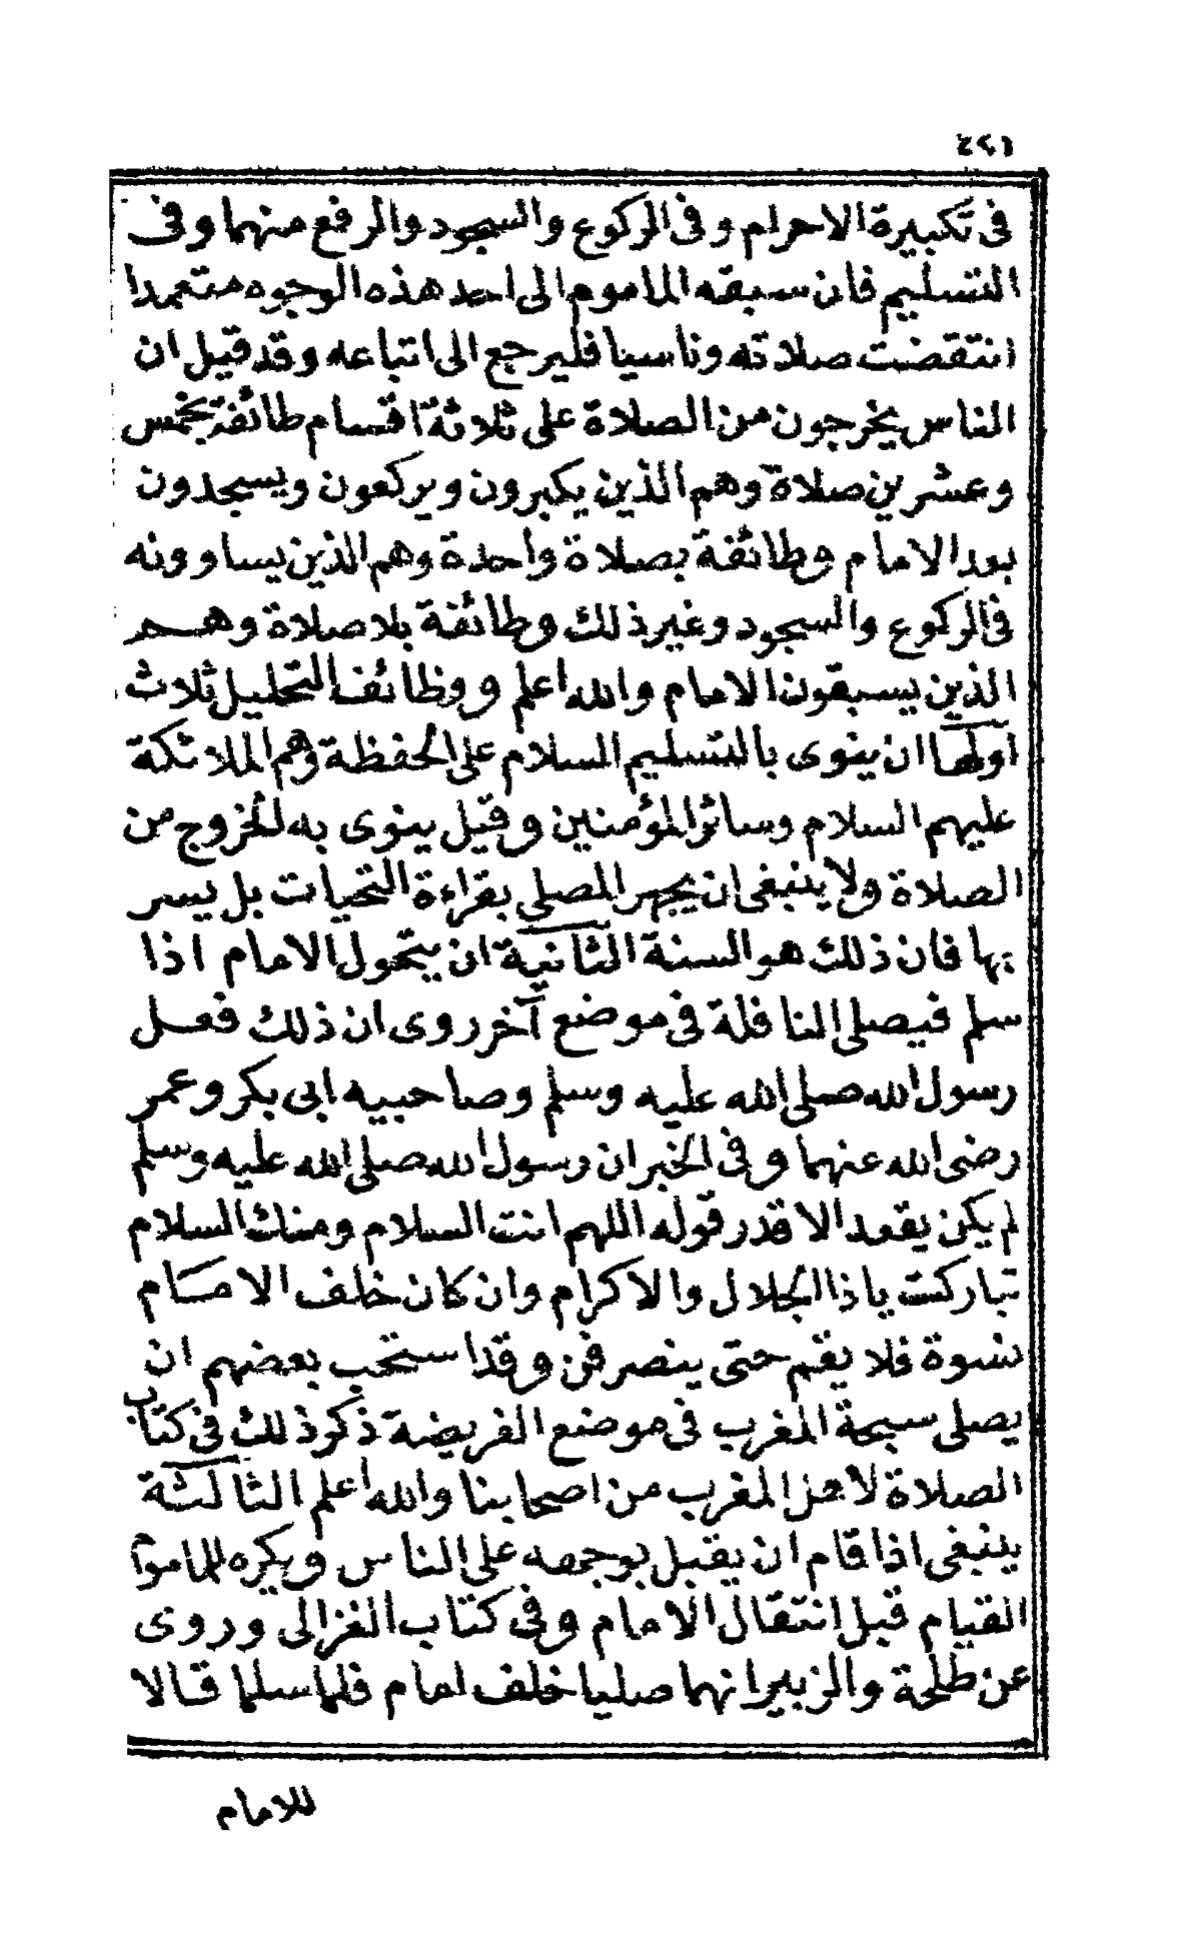 ٤٢٦
فى تكبيرة الاحرام وفى الركوع والسجود والرفع منهما وفى
التسليم فان سبقه الماموم الى احد هذه الوجوه متعمدا
انتقضت صلاته وناسيا فليرجع الى اتباعه وقد قيل ان
الناس يخرجون من الصلاة على ثلاثة اقسام طائفة بخمس
وعشرين صلاة وهم الذين يكبرون ويركعون ويسجدون
بعد الامام وطائفة بصلاة واحدة وهم الذين يساوونه
فى الركوع والسجود وغير ذلك وطائفة بلا صلاة وهم
الذين يسبقون الامام والله اعلم ووظائف التحليل ثلاث
اولها ان ينوى بالتسليم السلام على الحفظة وهم الملائكة
عليهم السلام وسائر المؤمنين وقيل ينوى به الخروج من
الصلاة ولا ينبغى ان يجهر المصلى بقراءة التحيات بل يسر
بها فان ذلك هو السنة الثانية ان يتحول الامام اذا
سلم فيصلى النافلة فى موضع آخر روى ان ذلك فعل
رسول الله صلى الله عليه وسلم وصاحبيه ابى بكر وعمر
رضى الله عنهما وفى الخبر ان رسول الله صلى الله عليه وسلم
لم يكن يقعد الا قدر قوله اللهم انت السلام ومنك السلام
تباركت ياذا الجلال والاكرام وان كان خلف الامام
نسوة فلا يقم حتى ينصرفن وقد استحب بعضهم ان
يصلى سبحة المغرب فى موضع الفريضة ذكر ذلك فى كتاب
الصلاة لاهل المغرب من اصحابنا والله اعلم الثالثة
ينبغى اذا قام ان يقبل بوجهه على الناس ويكره للماموم
القيام قبل انتقال الامام وفى كتاب الغزالى وروى
عن طلحة والزبير انهما صليا خلف امام فلما سلما قالا
للامام